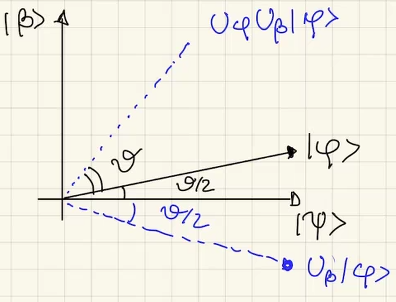 |β>
UφUβ|φ>
ϑ
|φ>
ϑ/2
|ψ>
ϑ/2
Uβ|φ>